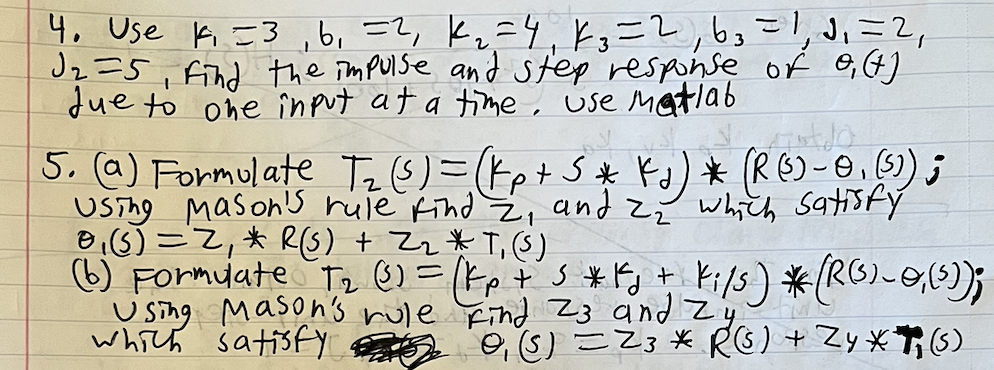 4. Use K₁=3, b₁=2, K₂=4, K₃=2, b₃=1, J₁=2,
J₂=5, find the impulse and step response of θ₁(t)
due to one input at a time. Use Matlab
5. (a) Formulate T₂(s)=(Kp+S*Kd)*(R(s)-θ₁(s));
Using Mason's rule find Z₁ and Z₂ which satisfy
θ₁(s)=Z₁*R(s)+Z₂*T₁(s)
(b) Formulate T₂(s)=(Kp+s*Kd+Ki/s)*(R(s)-θ₁(s));
Using Mason's rule find Z3 and Z4
which satisfy θ₁(s)=Z3*R(s)+Z4*T₁(s)